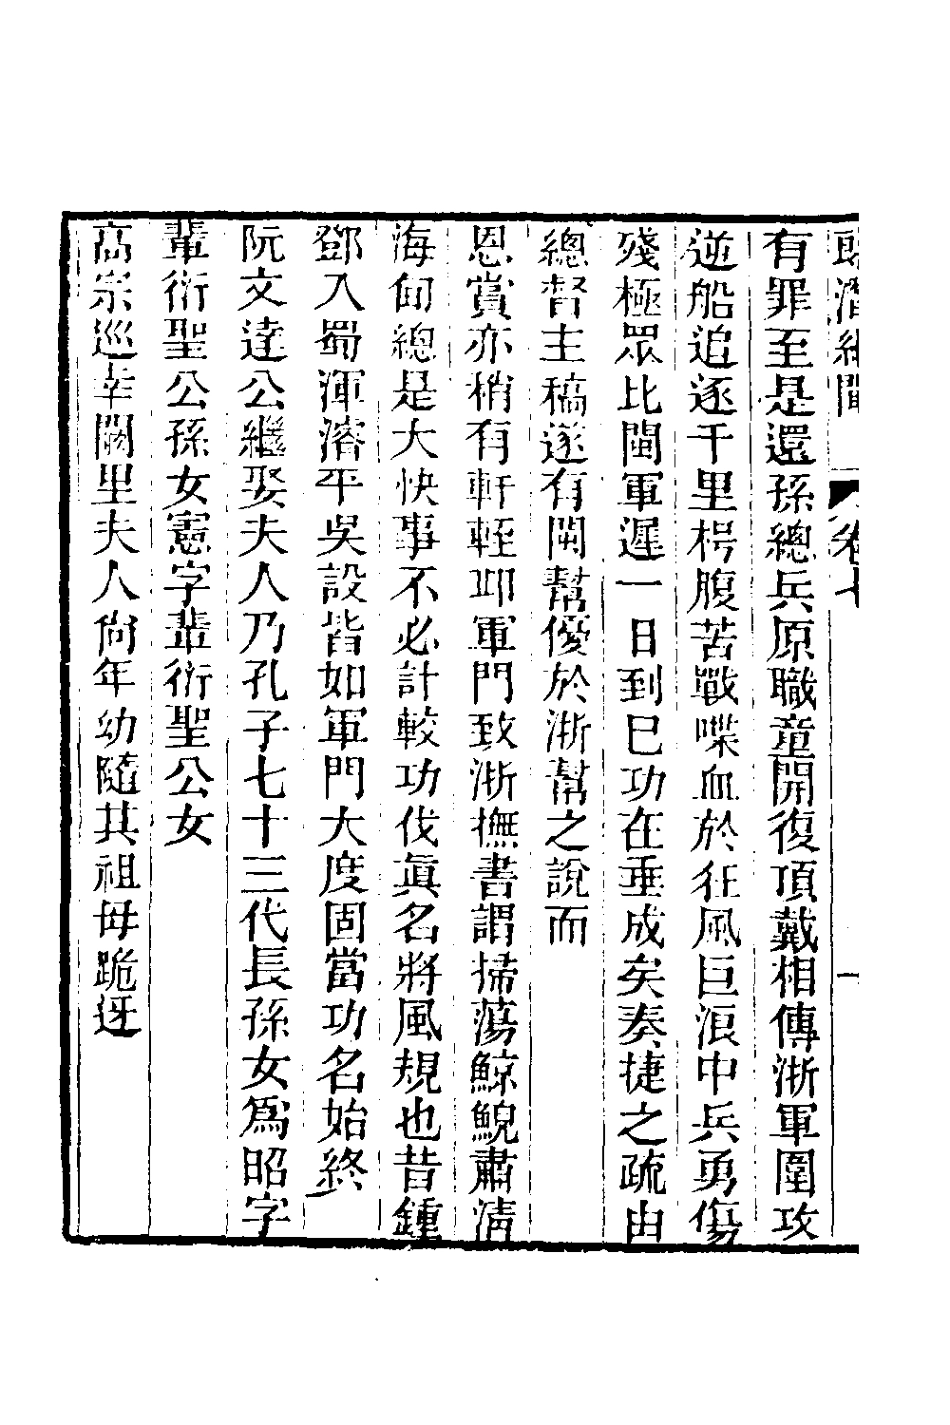 郎潛紀聞 卷七
有罪至是還孫總兵原職童開復頂戴相傳浙軍圍攻
逆船追逐千里枵腹苦戰喋血於狂風巨浪中兵勇傷
殘極眾比閩軍遲一日到已功在垂成矣奏捷之疏由
總督主稿遂有閩幫優於浙幫之說而
恩賞亦稍有軒輊邱軍門致浙撫書謂掃蕩鯨鯢肅淸
海甸總是大快事不必計較功伐眞名將風規也昔鍾
鄧入蜀渾濬平吳設皆如軍門大度固當功名始終
阮文達公繼娶夫人乃孔子七十三代長孫女爲昭字
輩衍聖公孫女憲字輩衍聖公女
高宗巡幸闕里夫人尙年幼隨其祖母跪迓